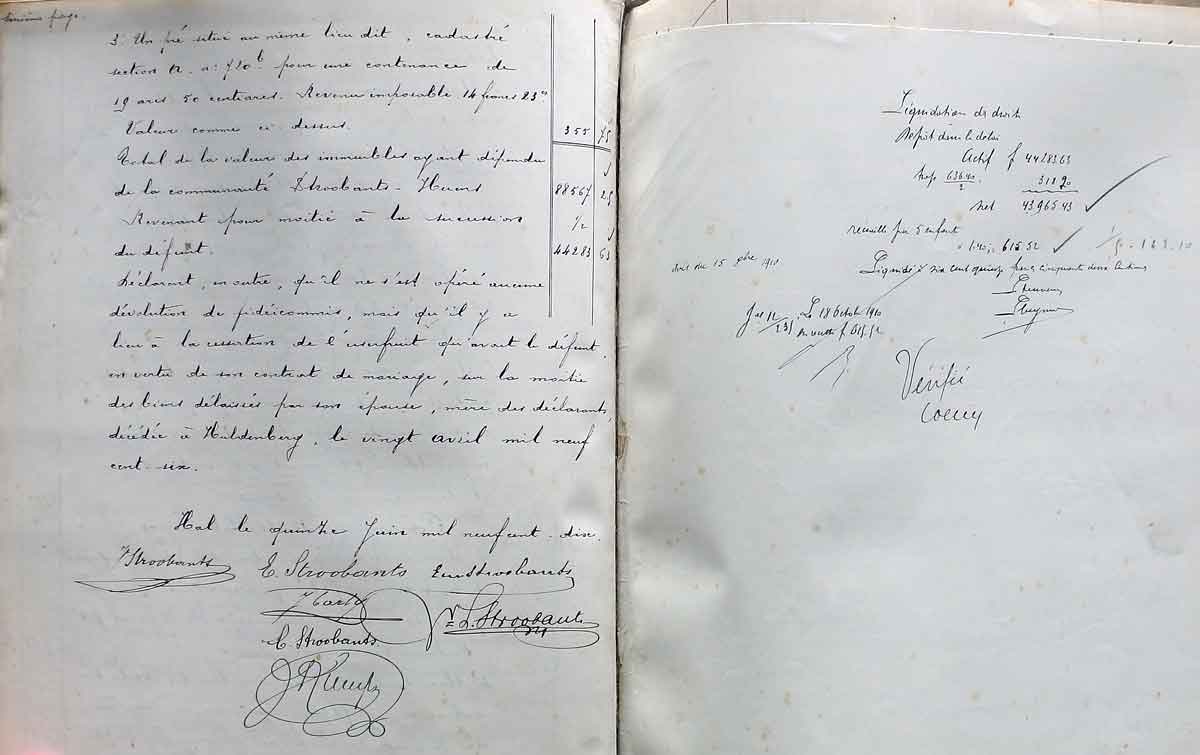 page.
3. Un pré situé au même lieu dit, cadastré
section A. n: 720b pour une contenance de
19 ares 50 centiares. Revenu imposable 14 francs 23 cs
Valeur comme ci dessus. 355 75
Total de la valeur des immeubles ayant dépendu
de la communauté Stroobants- 88567 25
Revenant pour moitié à la succession 1/2
du défunt. 44283 63
Déclarant, en outre, qu'il ne s'est opéré aucune
dévolution de fidéicommis, mais qu'il y a
lieu à la cessertion de l'usufruit qu'avait le défunt,
en vertu de son contrat de mariage, sur la moitié
des biens délaissés par son épouse, mère des déclarants,
décédée à Huldenberg, le vingt avril mil neuf
cent-six.
Hal le quinze Juin mil neufcent-dix.
Stroobants
E. Stroobants Em Stroobants
L. Stroobants
C. Stroobants
Liquidation de droit
Dépôt dans le délai
Actif f 44283.63
636.40
2
318.20
net 43.965.43
recueilli par 5 enfants
1.40 = 615.52
droit du 15 9bre 1910
Liquidé à six cent quinze francs cinquante deux centimes
Le 18 Octobre 1910
f 615.52
Vérifié